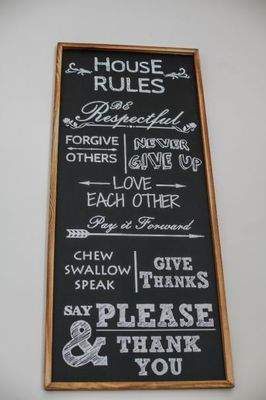 HOUSE
RULES
BE
Respectful
FORGIVE
OTHERS
NEVER
GIVE UP
LOVE
EACH OTHER
Pay it Forward
CHEW
SWALLOW
SPEAK
GIVE
THANKS
SAY PLEASE
& THANK
YOU